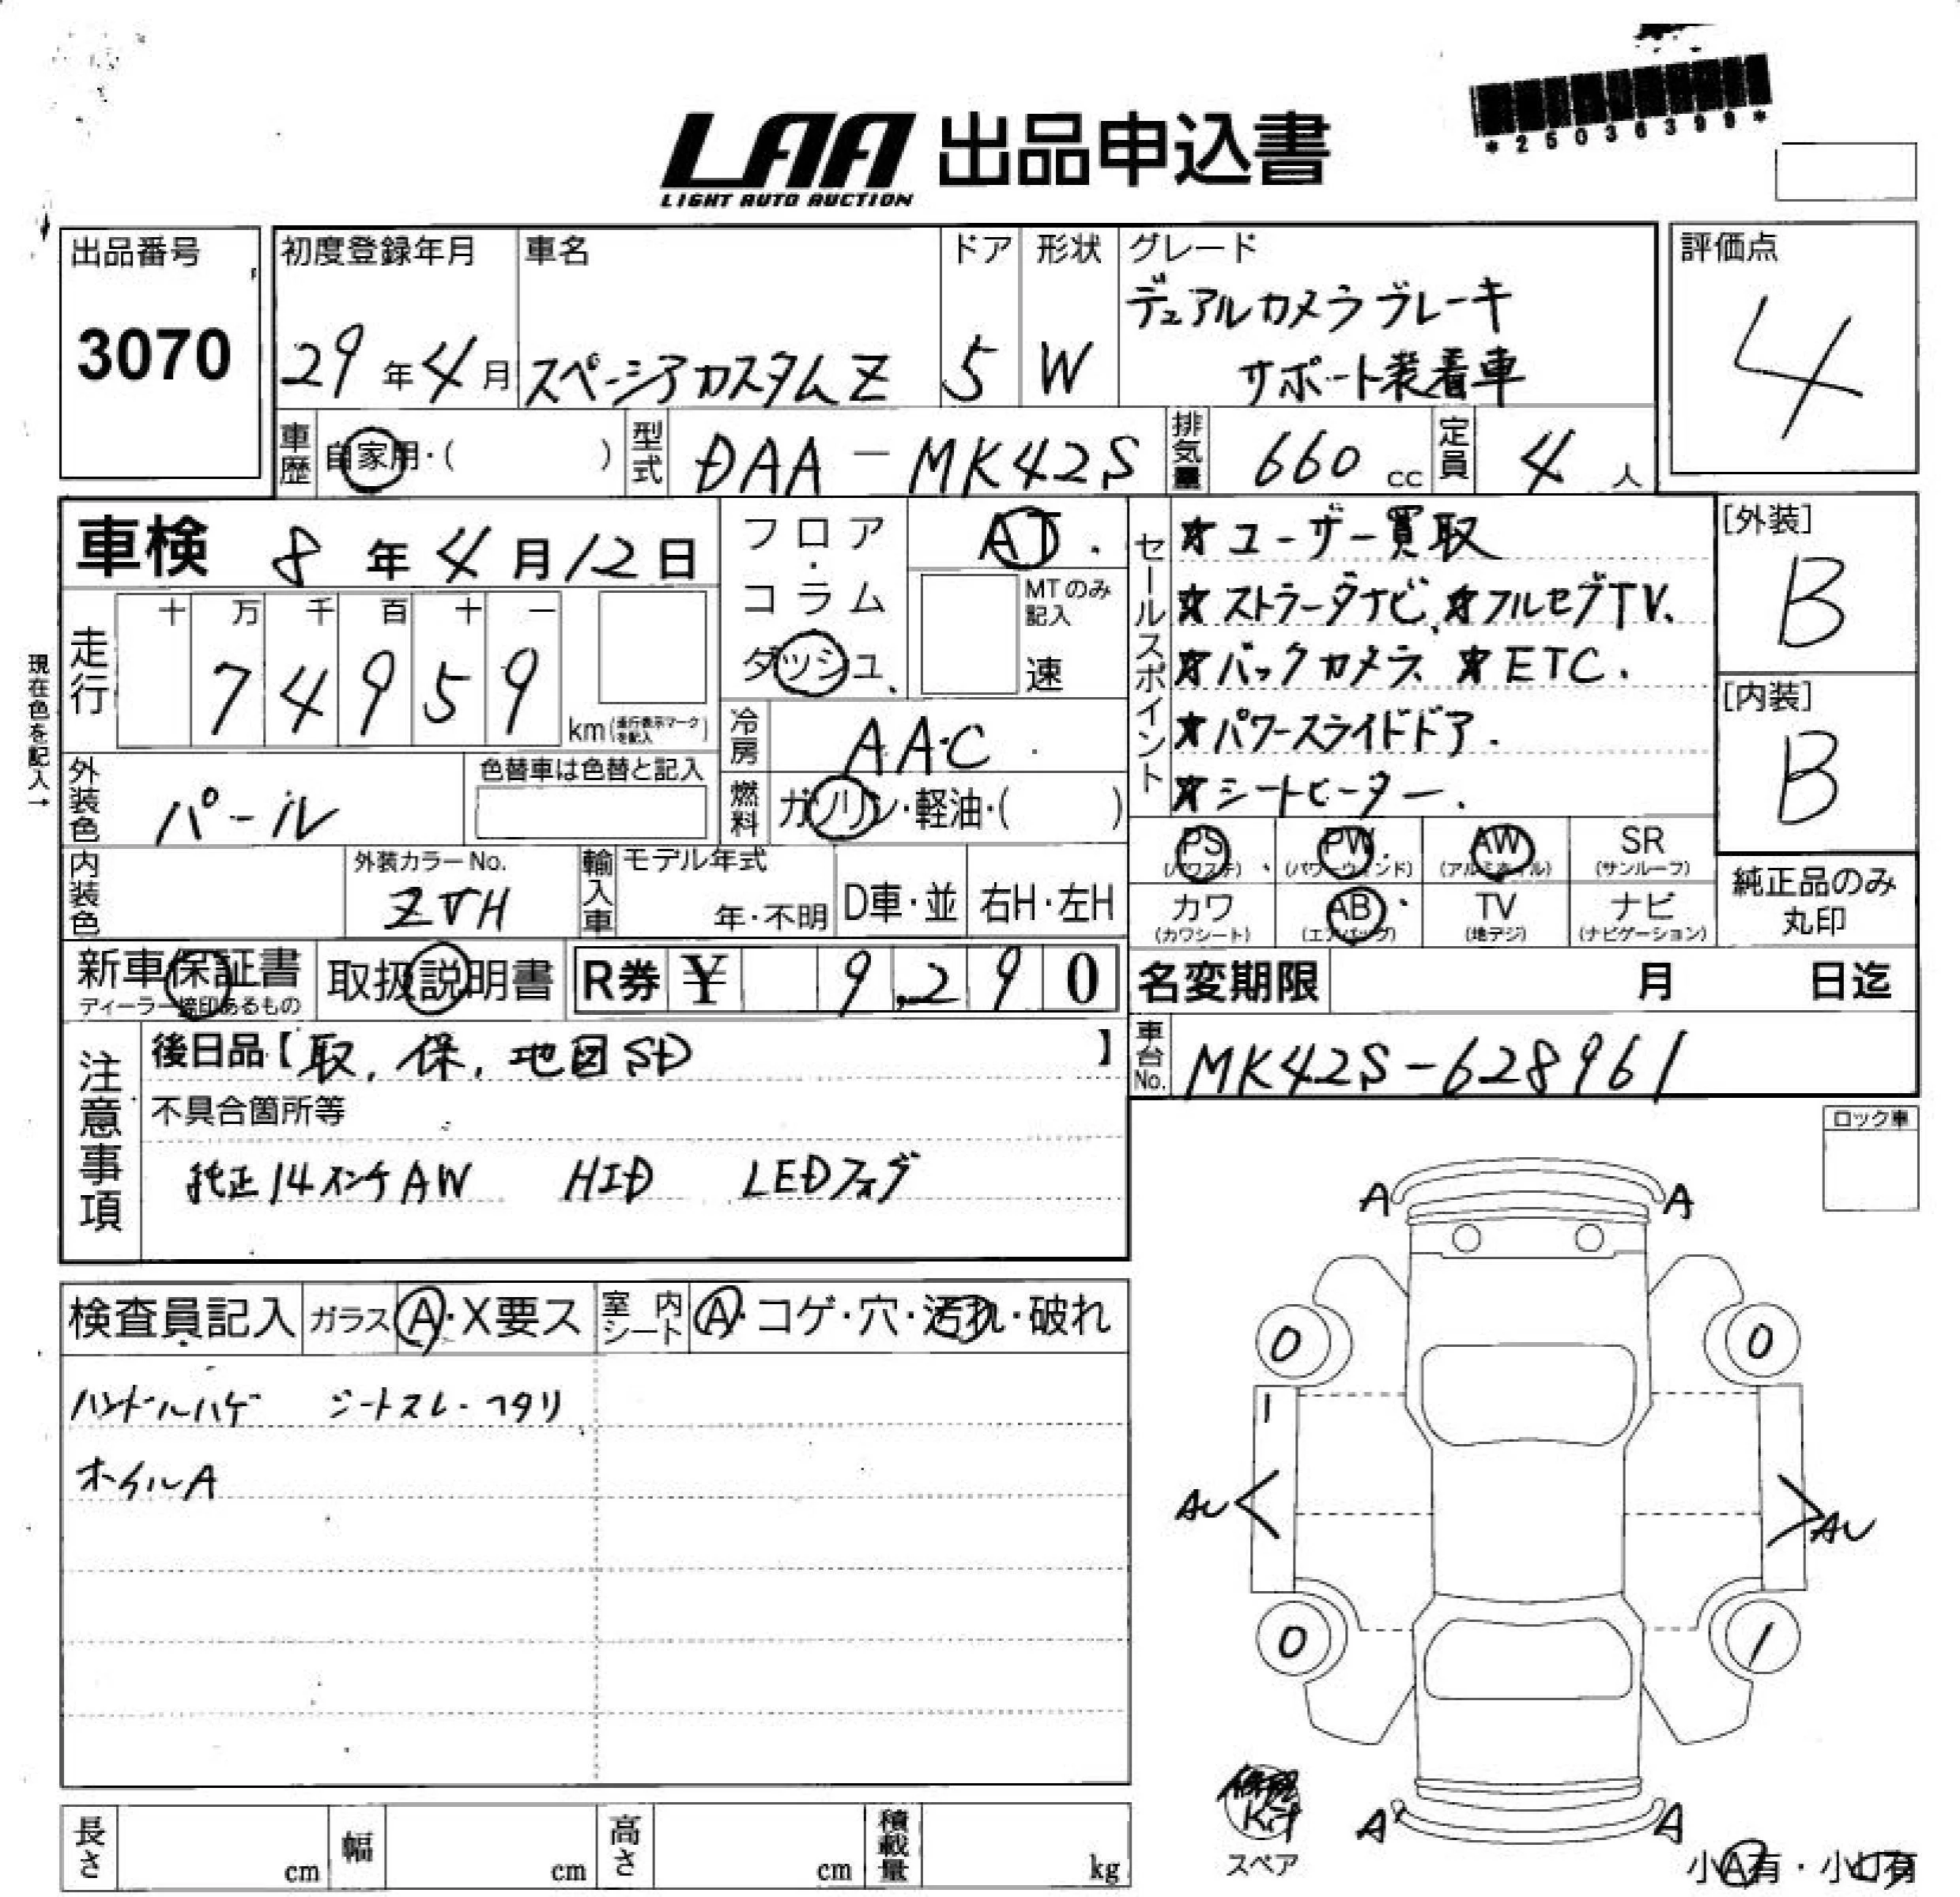 *25036399*
LAA 出品申込書
LIGHT AUTO AUCTION
出品番号
3070
初度登録年月
29年4月
車名
スペーシアカスタムZ
ドア
5
形状
W
グレード
デュアルカメラブレーキ
サポート装着車
評価点
4
車歴 自家用・( )
型式 DAA-MK42S
排気量 660cc
定員 4人
車検 8年4月12日
フロア・コラム
ダッシュ
AT
MTのみ記入
速
現在色を記入→
走行 十万千百十一
74959
km(走行表示マークを記入)
冷房 AAC
燃料 ガソリン・軽油・( )
外装色 パール
色替車は色替と記入
内装色
外装カラーNo.
ZVH
輸入車 モデル年式
年・不明
D車・並
右H・左H
セールスポイント
★ユーザー買取
★ストラーダナビ、★フルセグTV.
★バックカメラ ★ETC.
★パワースライドドア.
★シートヒーター.
[外装]
B
[内装]
B
PS (パワステ)
PW (パワーウィンド)
AW (アルミホイル)
SR (サンルーフ)
カワ (カワシート)
AB (エアバッグ)
TV (地デジ)
ナビ (ナビゲーション)
純正品のみ
丸印
新車保証書
ディーラー捺印あるもの
取扱説明書
R券 ¥ 9,290
名変期限 月 日迄
車台No. MK42S-628961
注意事項
後日品【取、保、地図SD】
不具合箇所等
純正14インチAW HID LEDフォグ
ロック車
検査員記入
ガラス A・X要ス
室内シート A・コゲ・穴・汚れ・破れ
ハンドルハゲ シートスレ・ヘタリ
ホイルA
A A
0 0
1
AU AU
0 1
修理
Kit
スペア
A A
小A有・小U有
長さ cm
幅 cm
高さ cm
積載量 kg